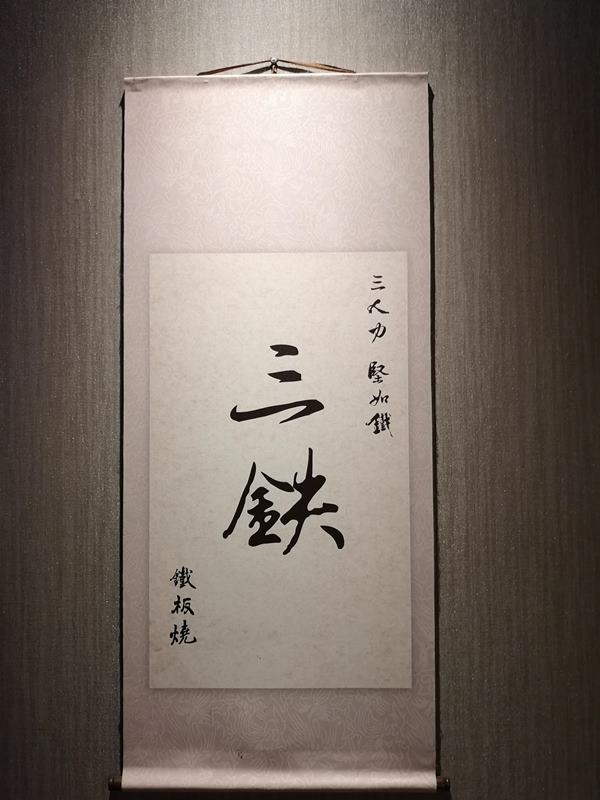 三人力 堅如鐵
三鉄
鐵板燒